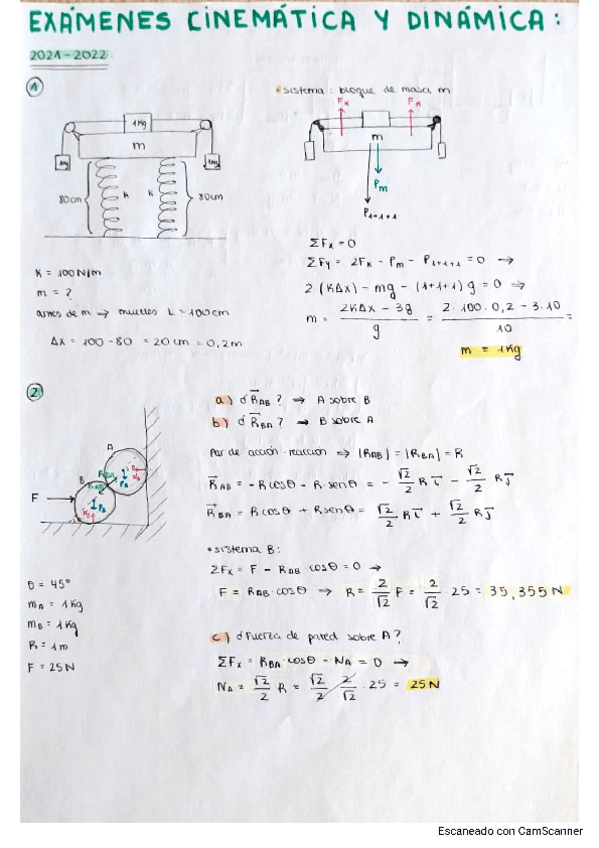 EXÁMENES CINEMÁTICA Y DINÁMICA:
2021-2022:
1
• sistema: bloque de masa m
1Kg
m
1Kg
1Kg
80cm
K
K
80cm
FK
FK
m
Pm
P1+1+1
ΣFx = 0
ΣFy = 2FK - Pm - P1+1+1 = 0 →
2 (KΔx) - mg - (1+1+1) g = 0 ⇒
m = 2KΔx - 3g / g = 2·100·0,2 - 3·10 / 10 =
m = 1Kg
K = 100N/m
m = ?
antes de m → muelles L = 100cm
Δx = 100 - 80 = 20cm = 0,2m
2
a) ¿R⃗AB? ⇒ A sobre B
b) ¿R⃗BA? → B sobre A
Par de acción-reacción ⇒ |RAB| = |RBA| = R
R⃗AB = -R cosθ - R·senθ = - √2/2 R i⃗ - √2/2 R j⃗
R⃗BA = R cosθ + R senθ = √2/2 R i⃗ + √2/2 R j⃗
A
B
F
PA
NA
• sistema B:
ΣFx = F - RAB·cosθ = 0 →
F = RAB·cosθ ⇒ R = 2/√2 F = 2/√2 · 25 = 35,355N
θ = 45°
mA = 1Kg
mB = 1Kg
R = 1m
F = 25N
c) ¿Fuerza de pared sobre A?
ΣFx = RBA·cosθ - NA = 0 →
NA = √2/2 R = √2/2 2/√2 · 25 = 25N
Escaneado con CamScanner